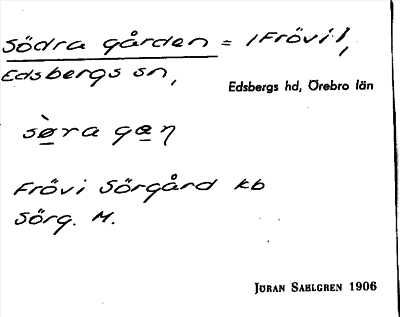 Södra gården = /Frövi:/,
Edsbergs sn,
Edsbergs hd, Örebro län
sø̀ra gaŋ
Frövi Sörgård kb
Sörg. M.
JÖRAN SAHLGREN 1906